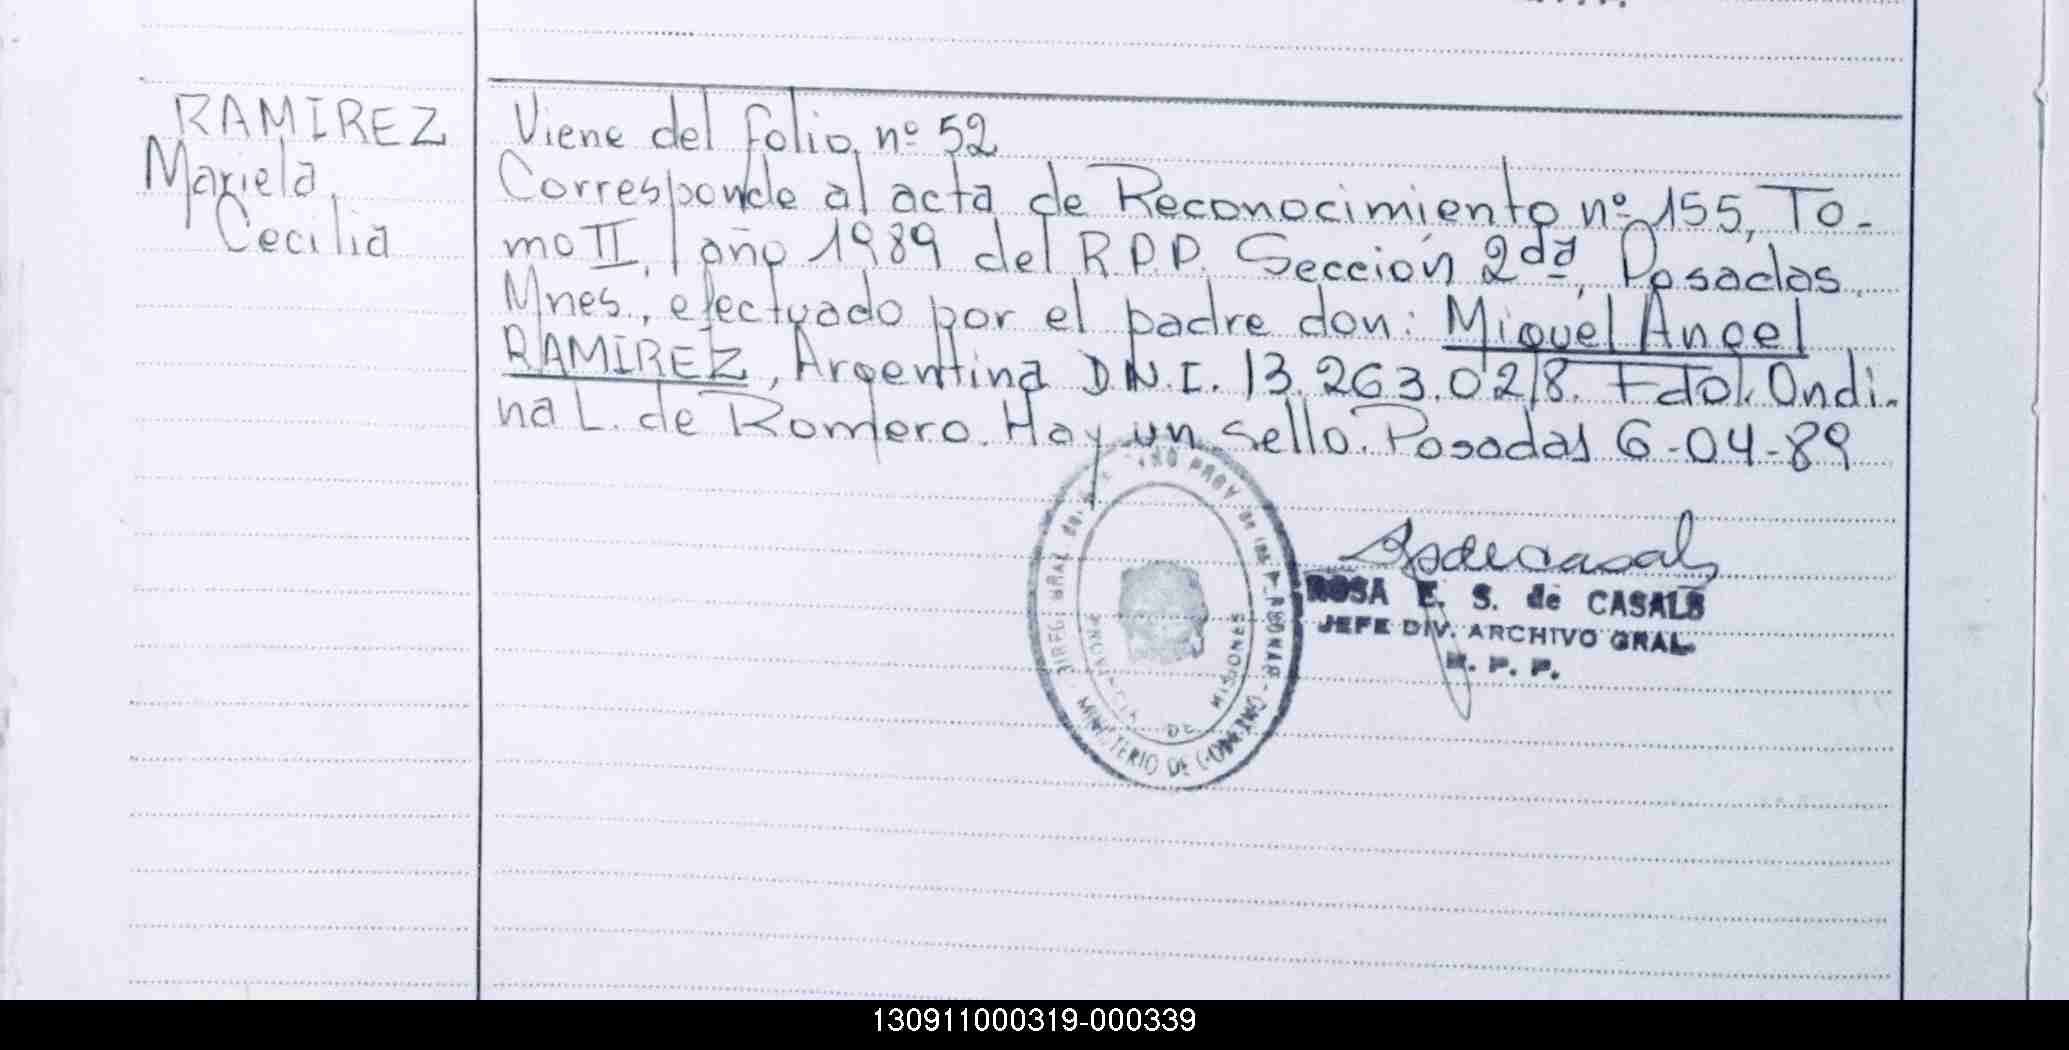 RAMIREZ
Mariela
Cecilia
Viene del folio nº 52
Corresponde al acta de Reconocimiento nº 155, To-
mo II, año 1989 del R.P.P. Sección 2da, Posadas,
Mnes., efectuado por el padre don: Miguel Angel
RAMIREZ, Argentina D.N.I. 13.263.028. Fdo. Ondi-
na L. de Romero. Hay un sello. Posadas 6-04-89
ROSA E. S. de CASALS
JEFE DIV. ARCHIVO GRAL.
R. P. P.
DIREC. GRAL de PROV de las PERSONAS
MINISTERIO DE GOBIERNO
PROVINCIA DE MISIONES
130911000319-000339